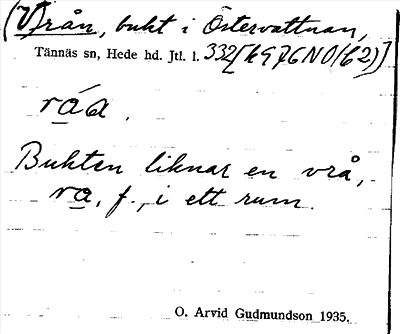 (V)rån, bukt i Östervattnan,
Tännäs sn, Hede hd. Jtl. l. 332[k976NO/62)]
råa.
Bukten liknar en vrå,
ra, f., i ett rum.
O. Arvid Gudmundson 1935.